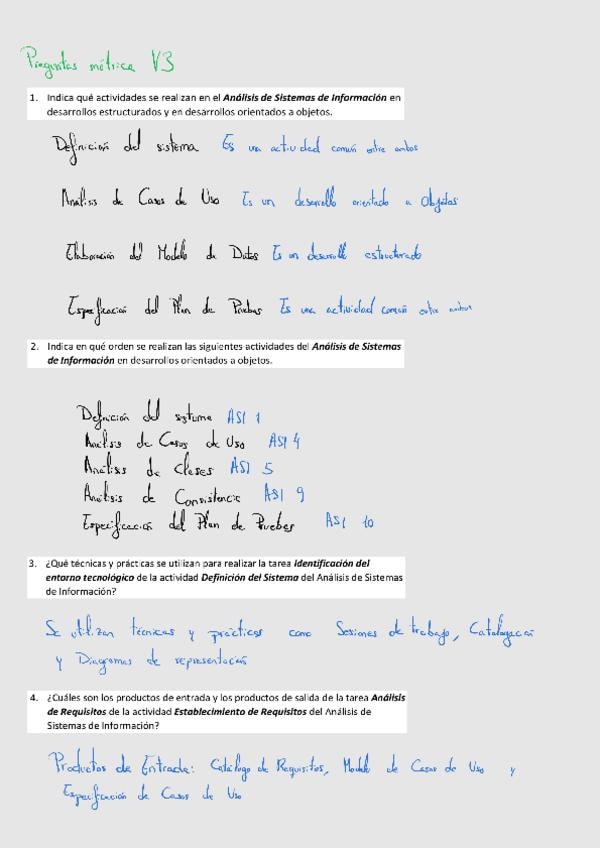 Preguntas métrica V3
1. Indica qué actividades se realizan en el Análisis de Sistemas de Información en
desarrollos estructurados y en desarrollos orientados a objetos.
Definición del sistema Es una actividad común entre ambos
Análisis de Casos de Uso Es un desarrollo orientado a Objetos
Elaboración del Modelo de Datos Es un desarrollo estructurado
Especificación del Plan de Pruebas Es una actividad común entre ambos
2. Indica en qué orden se realizan las siguientes actividades del Análisis de Sistemas
de Información en desarrollos orientados a objetos.
Definición del sistema ASI 1
Análisis de Casos de Uso ASI 4
Análisis de Clases ASI 5
Análisis de Consistencia ASI 9
Especificación del Plan de Pruebas ASI 10
3. ¿Qué técnicas y prácticas se utilizan para realizar la tarea Identificación del
entorno tecnológico de la actividad Definición del Sistema del Análisis de Sistemas
de Información?
Se utilizan técnicas y prácticas como Sesiones de trabajo, Catalogación
y Diagramas de representación
4. ¿Cuáles son los productos de entrada y los productos de salida de la tarea Análisis
de Requisitos de la actividad Establecimiento de Requisitos del Análisis de
Sistemas de Información?
Productos de Entrada: Catálogo de Requisitos, Modelo de Casos de Uso y
Especificación de Casos de Uso